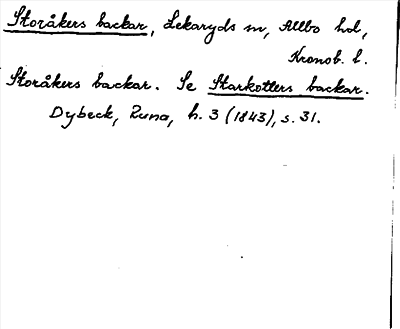 Storåkers backar, Lekaryds sn, Allbo hd,
Kronob. l.
Storåkers backar. Se Starkotters backar.
Dybeck, Runa, h. 3 (1843), s. 31.